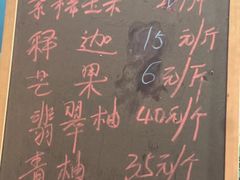 释迦 15元/斤
芒果 6元/斤
翡翠柚 40元/个
青柚 35元/个